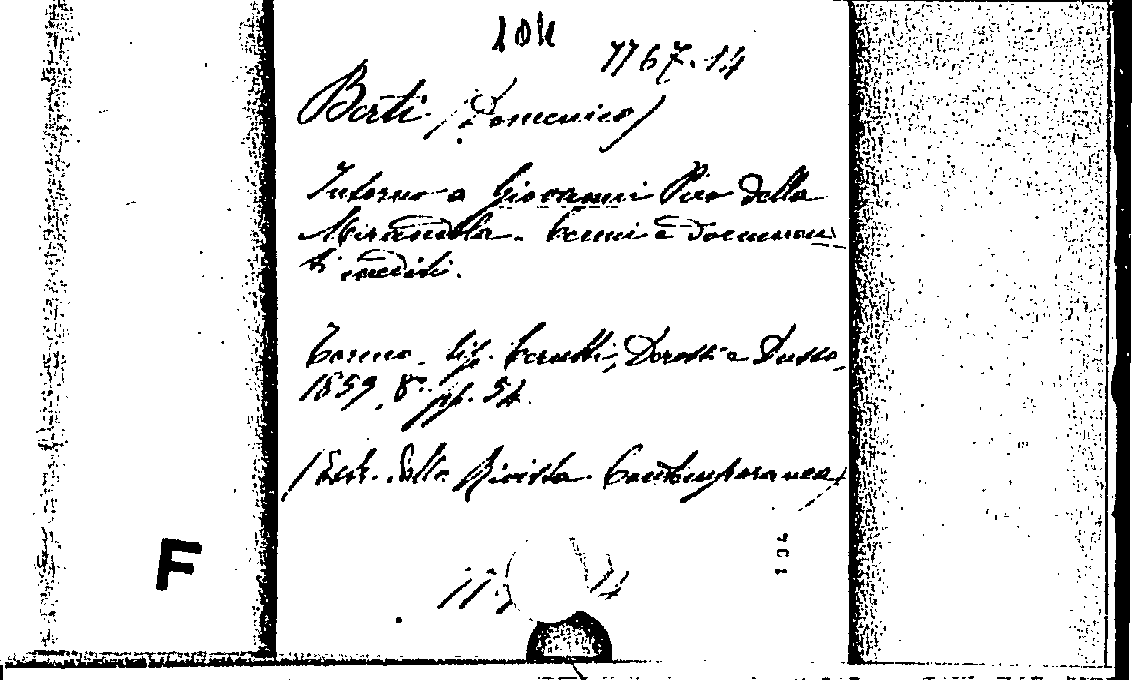 104
1167.14
Berti (Domenico)
Intorno a Giovanni Pico della
Mirandola. Cenni e documen
ti inediti.
Torino. tip. Cerutti, Derossi e Dusso,
1859, 8°. pp. 54.
(Estr. dalla Rivista Contemporanea)
104
F